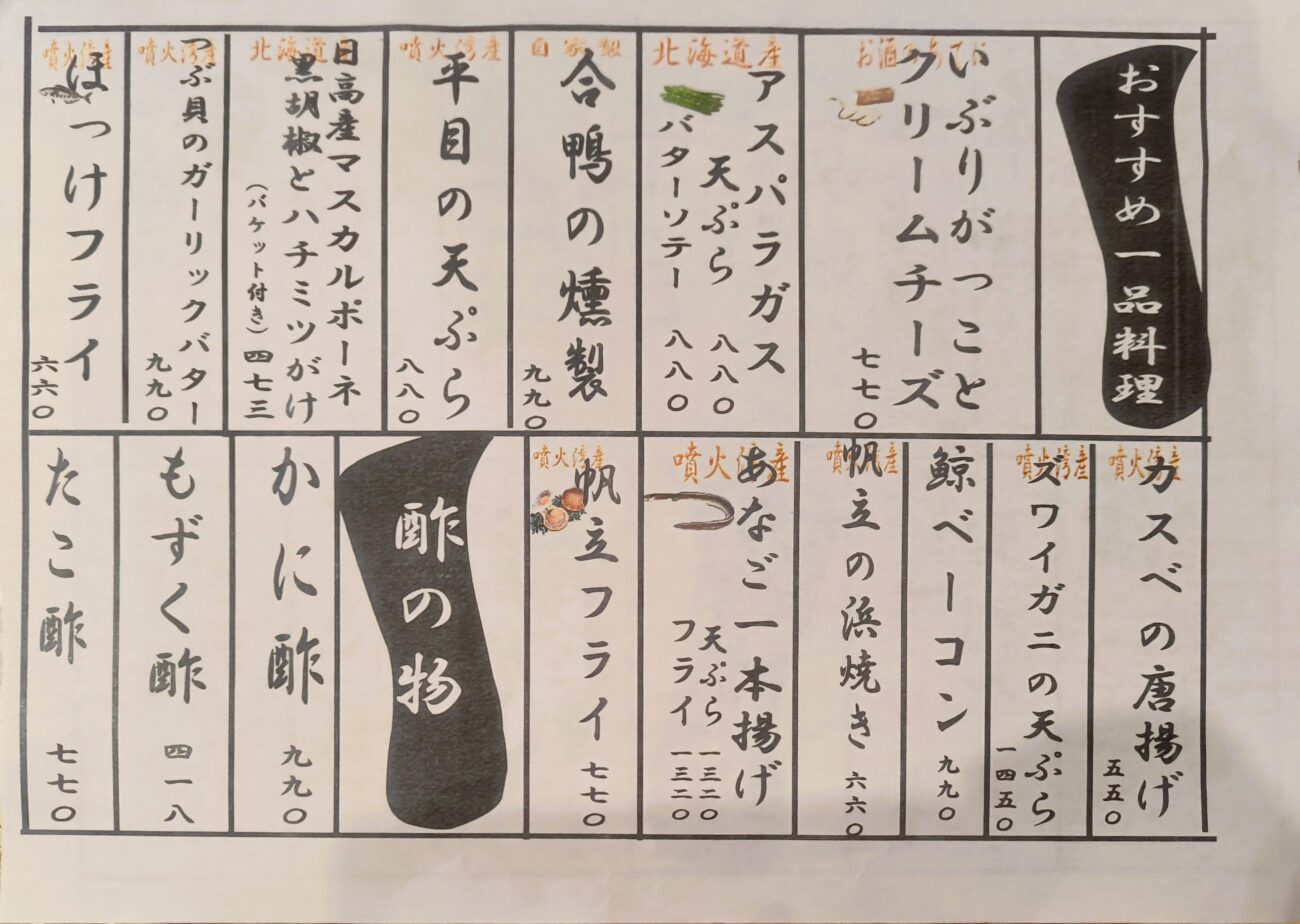 おすすめ一品料理
お酒のあてに
いぶりがっこと
クリームチーズ
七七〇
北海道産
アスパラガス
天ぷら 八八〇
バターソテー 八八〇
自家製
合鴨の燻製
九九〇
噴火湾産
平目の天ぷら
八八〇
北海道産
日高産マスカルポーネ
黒胡椒とハチミツがけ
(バケット付き)四七三
噴火湾産
つぶ貝のガーリックバター
九九〇
噴火湾産
ほっけフライ
六六〇
噴火湾産
カスベの唐揚げ
五五〇
噴火湾産
ズワイガニの天ぷら
一四五〇
鯨ベーコン
九九〇
噴火湾産
帆立の浜焼き 六六〇
噴火湾産
あなご一本揚げ
天ぷら 一三二〇
フライ 一三二〇
噴火湾産
帆立フライ 七七〇
酢の物
かに酢 九九〇
もずく酢 四一八
たこ酢 七七〇